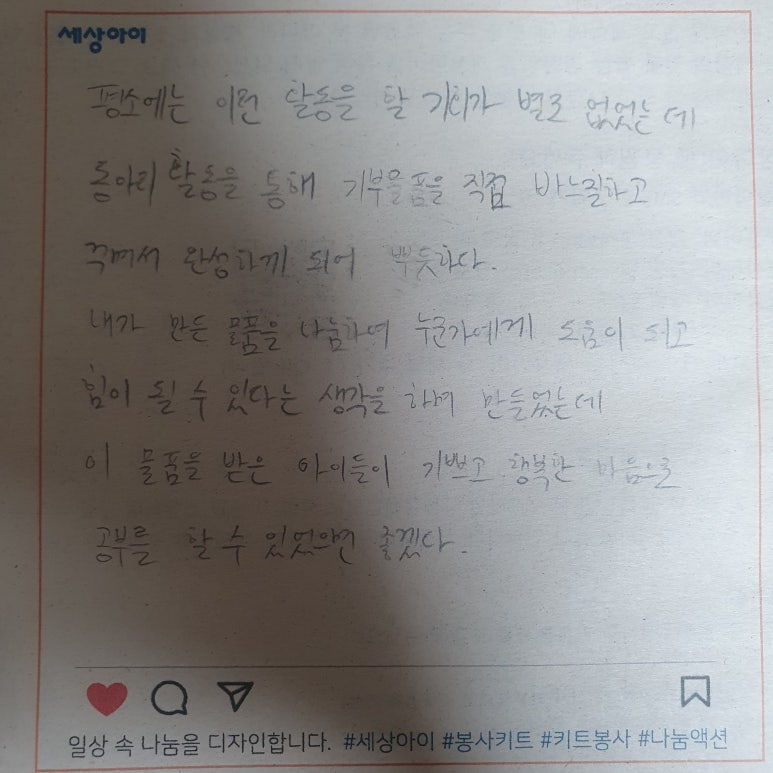 세상아이
평소에는 이런 활동을 할 기회가 별로 없었는데
동아리 활동을 통해 기부물품을 직접 바느질하고
꾸며서 완성하게 되어 뿌듯하다.
내가 만든 물품을 나눔하여 누군가에게 도움이 되고
힘이 될 수 있다는 생각을 하며 만들었는데
이 물품을 받은 아이들이 기쁘고 행복한 마음으로
공부를 할 수 있었으면 좋겠다.
일상 속 나눔을 디자인합니다. #세상아이 #봉사키트 #키트봉사 #나눔액션